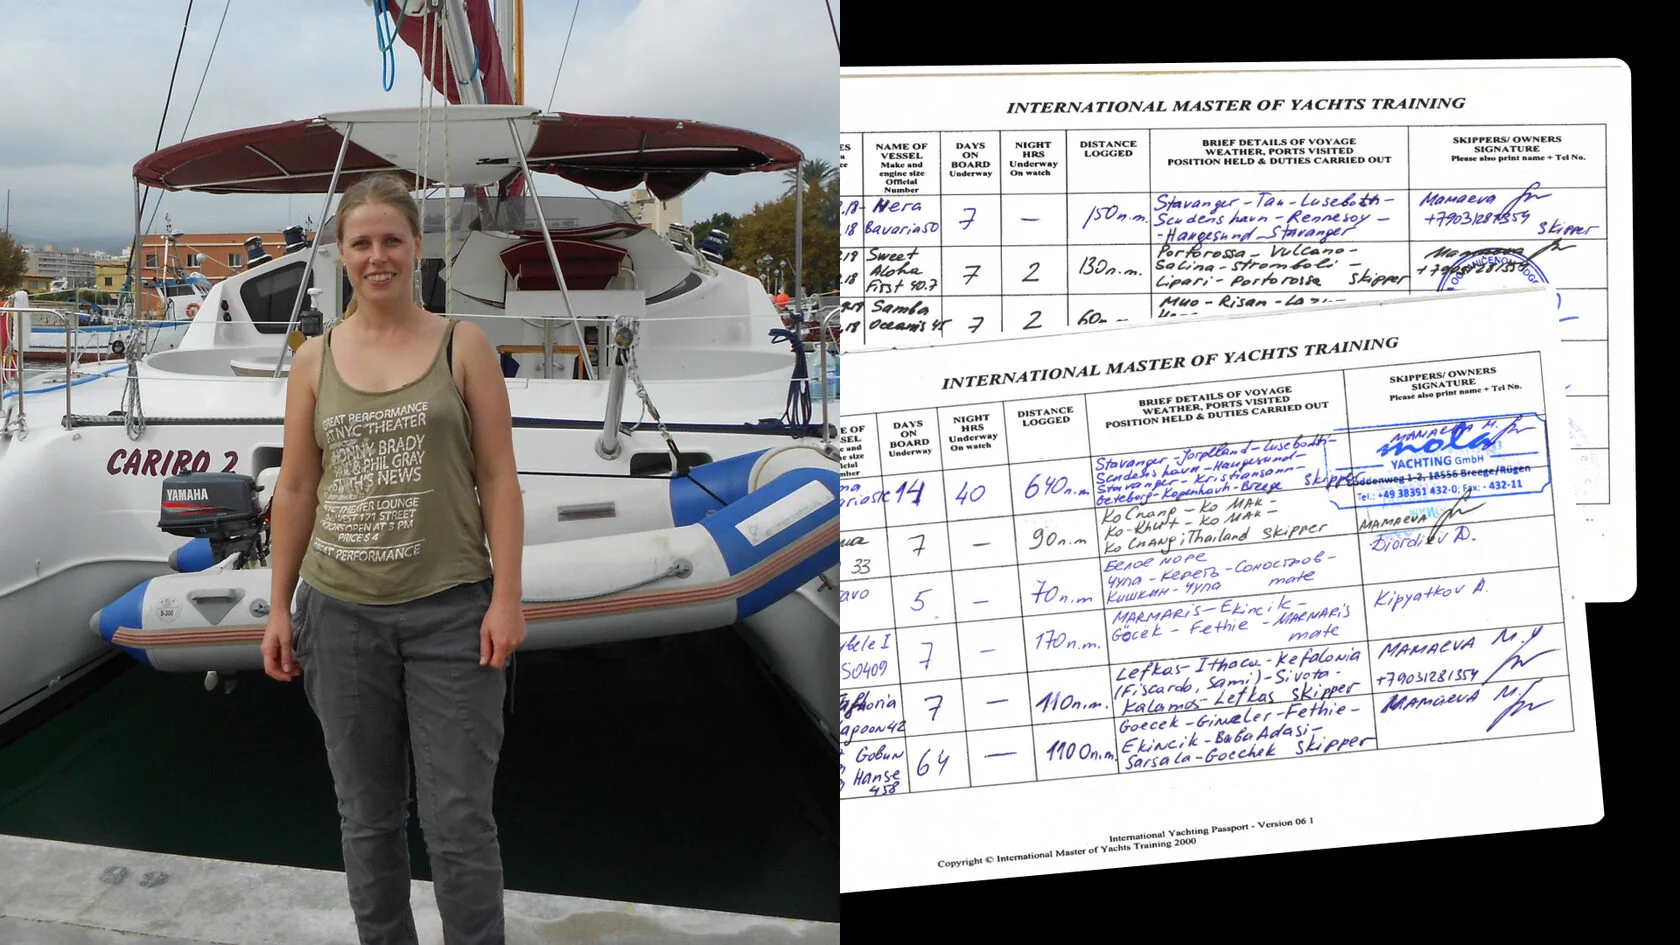 CARIBO 2
YAMAHA
GREAT PERFORMANCE
AT NYC THEATER
& PHIL GRAY
SMITH'S NEWS
THEATER LOUNGE
WEST 121 STREET
DOORS OPEN AT 8 PM
PRICE $ 4
GREAT PERFORMANCE
INTERNATIONAL MASTER OF YACHTS TRAINING
NAME OF VESSEL Make and engine size Official Number
DAYS ON BOARD Underway
NIGHT HRS Underway On watch
DISTANCE LOGGED
BRIEF DETAILS OF VOYAGE WEATHER, PORTS VISITED POSITION HELD & DUTIES CARRIED OUT
SKIPPERS/ OWNERS SIGNATURE Please also print name + Tel No.
Nera
Bavaria 50
7
—
150 n.m.
Stavanger - Tau - Lusebotth -
Sendenshavn - Rennesoy -
- Haugesund - Stavanger
Mamaeva
+79031281354
skipper
Sweet
Aloha
First 40.7
7
2
130 n.m.
Portorossa - Vulcano -
Salina - Stromboli -
Lipari - Portorosse skipper
Mamaeva
+79031281354
Samba
Oceanis 45
7
2
60
Muo - Risan -
INTERNATIONAL MASTER OF YACHTS TRAINING
DAYS ON BOARD Underway
NIGHT HRS Underway On watch
DISTANCE LOGGED
BRIEF DETAILS OF VOYAGE WEATHER, PORTS VISITED POSITION HELD & DUTIES CARRIED OUT
SKIPPERS/ OWNERS SIGNATURE Please also print name + Tel No.
14
40
640 n.m.
Stavanger - Jorplland - Lusebotth -
Sendenshavn - Haugesund -
Stavanger - Kristiansann -
Geteborg - Kopenhavn - Breege skipper
MAMAEVA M.
mola
YACHTING GmbH
Boddenweg 1-2, 18556 Breege/Rügen
Tel.: +49 38391 432-0; Fax: - 432-11
33
7
—
90 n.m
Ko Chang - Ko MAK -
Ko-Khut - Ko MAK -
Ko CHANG; Thailand skipper
MAMAEVA
5
—
70 n.m
Белое море
Чупа - Кереть - Соностров -
Кишкин - Чупа mate
Diordiev D.
7
—
170 n.m.
MARMARIS - Ekincik -
Göcek - Fethie - MARMARIS
mate
Kipyatkov A.
7
—
110 n.m.
Lefkas - Ithaca - Kefalonia
(Fiscardo, Sami) - Sivota -
Kalamos - Lefkas skipper
MAMAEVA M.
+79031281354
Gobun
Hanse
458
64
—
1100 n.m.
Goecek - Gineler - Fethie -
Ekincik - Baba Adasi -
Sarsala - Goechek skipper
MAMAEVA M.
International Yachting Passport - Version 06 1
Copyright © International Master of Yachts Training 2000